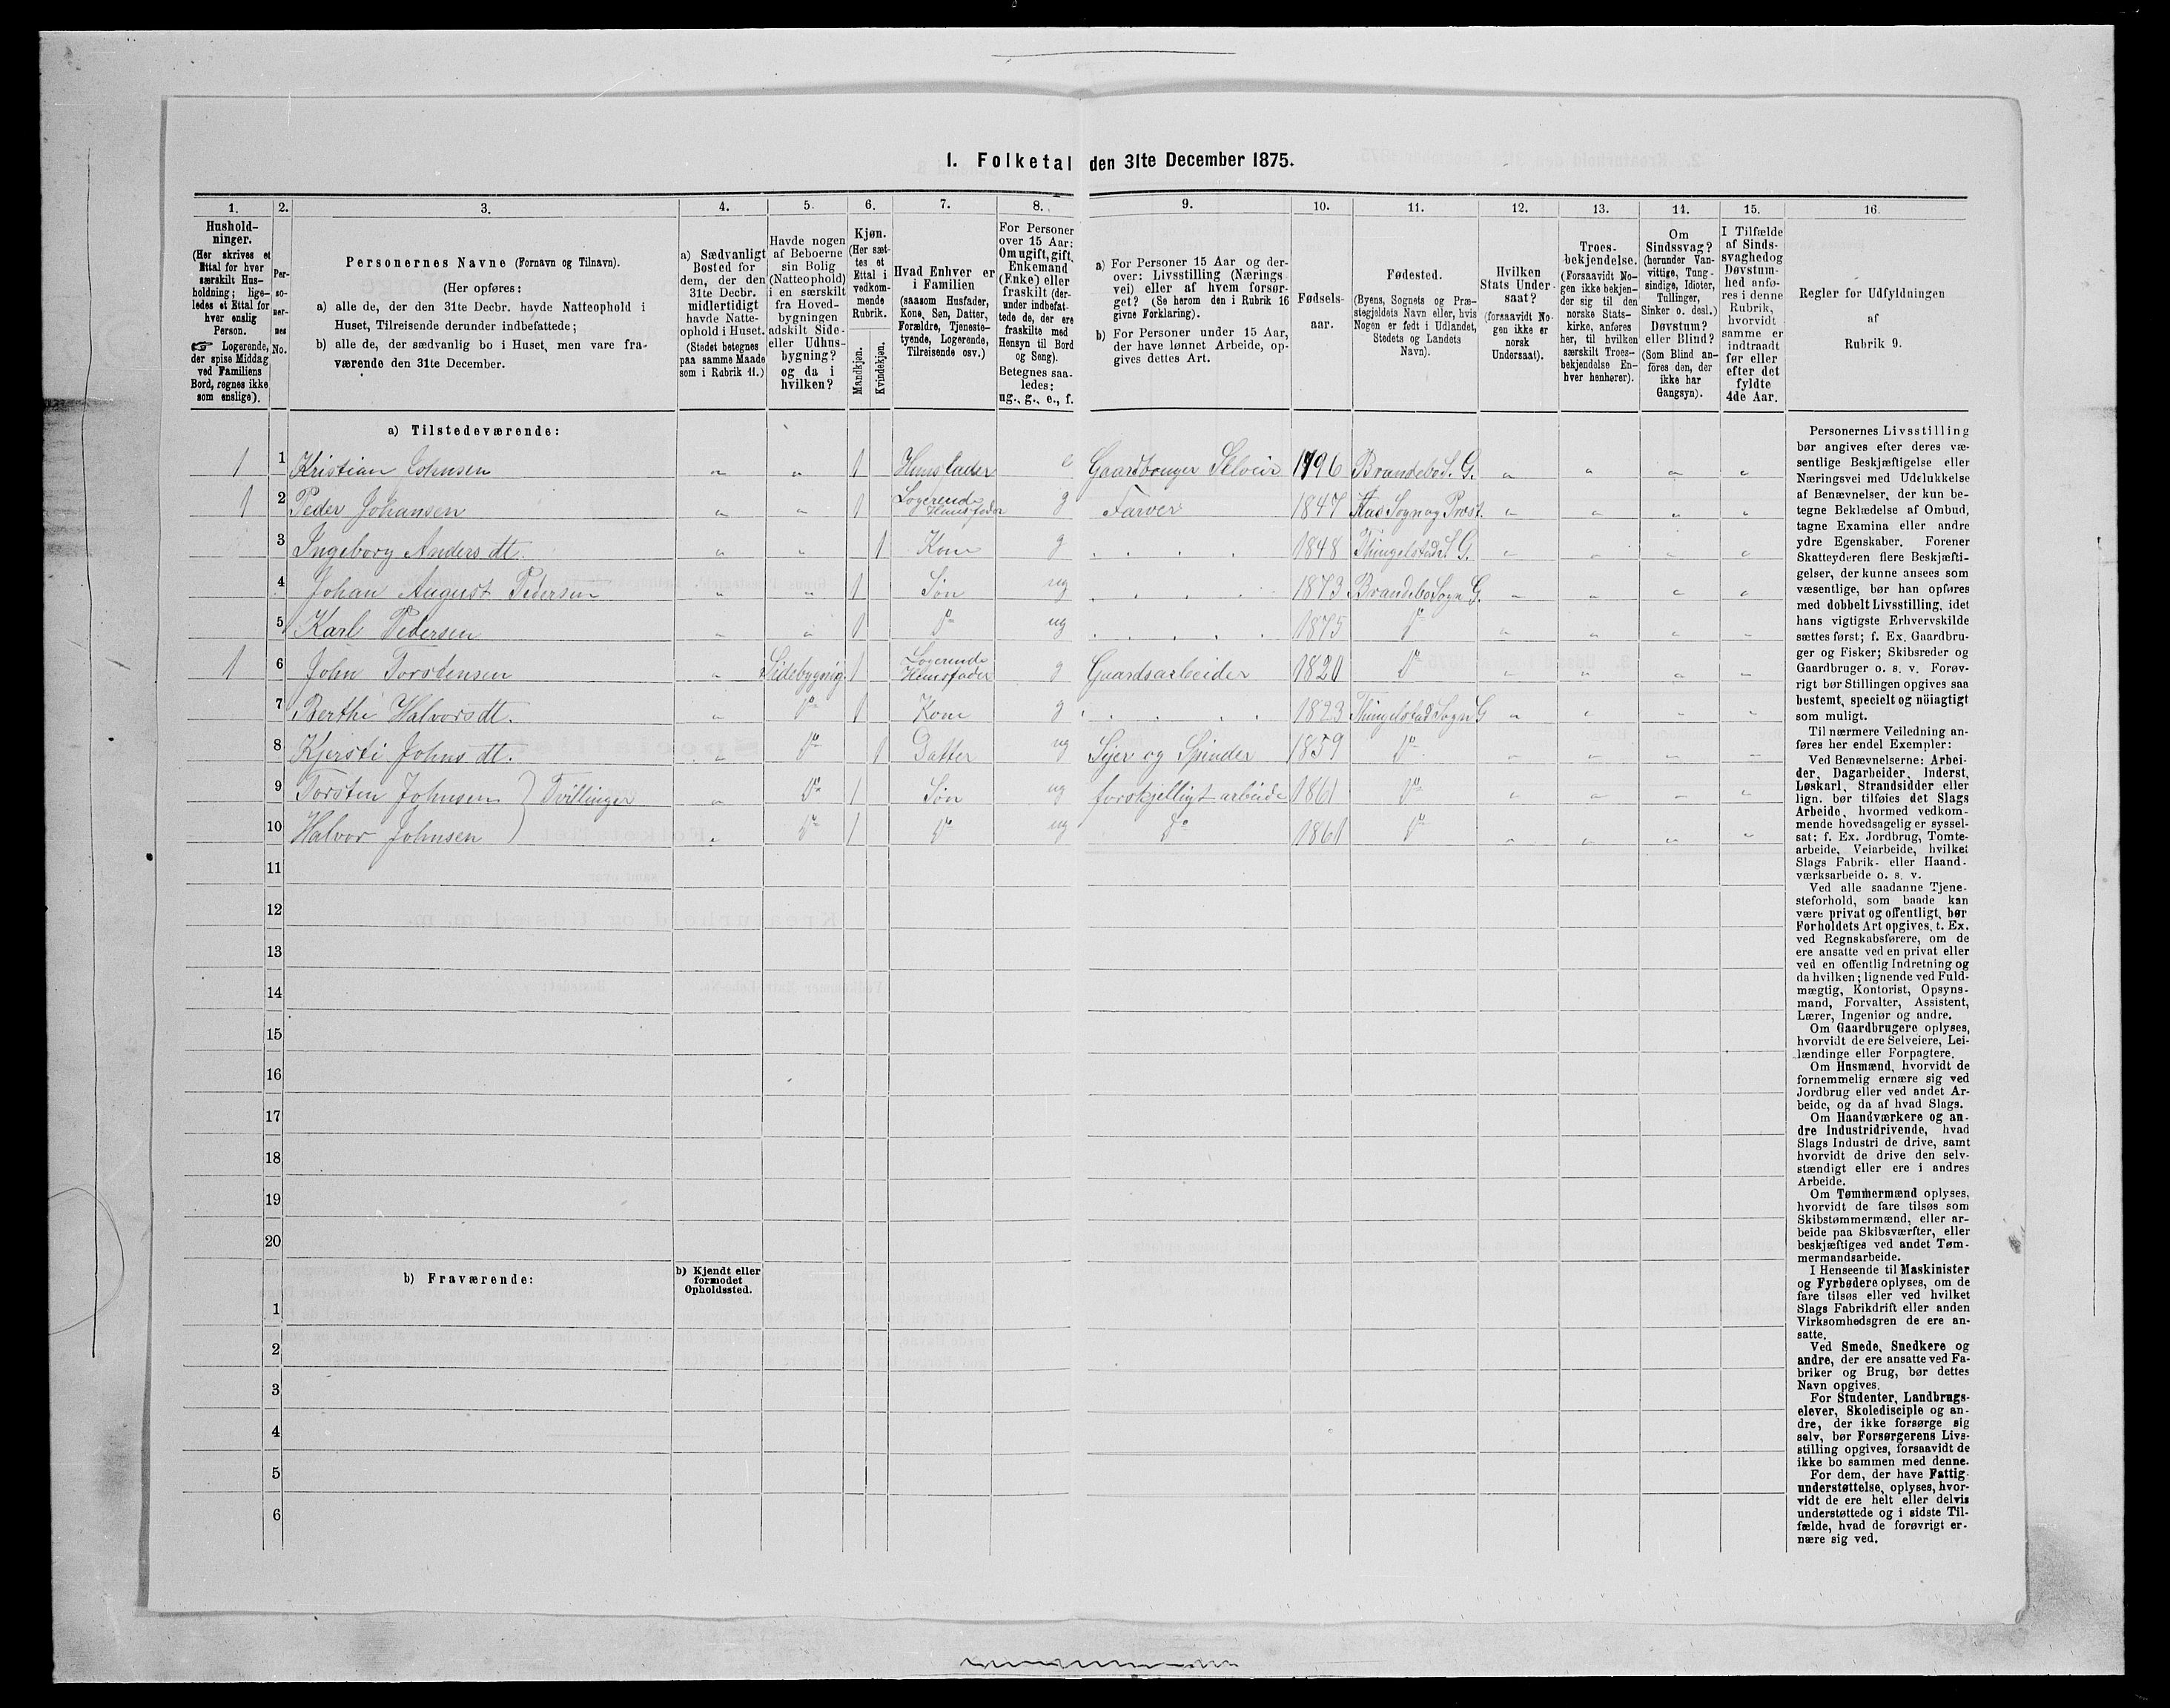 1. Folketal den 31te December 1875.
1.
2.
3.
4.
5.
6.
7.
8.
9.
10.
11.
12.
13.
14.
15.
16.
Hushold-
ninger.
(Her skrives et
Ettal for hver
særskilt Hus-
holdning; lige-
ledes et Ettal for
hver enslig
Person.
☞ Logerende,
der spise Middag
ved Familiens
Bord, regnes ikke
som enslige).
Per-
so-
ner-
nes
No.
Personernes Navne (Fornavn og Tilnavn).
(Her opføres:
a) alle de, der den 31te Decbr. havde Natteophold i
Huset, Tilreisende derunder indbefattede;
b) alle de, der sædvanlig bo i Huset, men vare fra-
værende den 31te December.
a) Sædvanligt
Bosted for
dem, der den
31te Decbr.
midlertidigt
havde Natte-
ophold i Huset.
(Stedet betegnes
paa samme Maade
som i Rubrik 11.)
Havde nogen
af Beboerne
sin Bolig
(Natteophold)
i en særskilt
fra Hoved-
bygningen
adskilt Side-
eller Udhus-
bygning?
og da i
hvilken?
Kjøn.
(Her sæt-
tes et
Ettal i
vedkom-
mende
Rubrik.
Mandkjøn.
Kvindekjøn.
Hvad Enhver er
i Familien
(saasom Husfader,
Kone, Søn, Datter,
Forældre, Tjeneste-
tyende, Logerende,
Tilreisende osv.)
For Personer
over 15 Aar:
Om ugift, gift,
Enkemand
(Enke) eller
fraskilt (der-
under indbefat-
tede de, der ere
fraskilte med
Hensyn til Bord
og Seng).
Betegnes saa-
ledes:
ug., g., e., f.
a) For Personer 15 Aar og der-
over: Livsstilling (Nærings-
vei) eller af hvem forsør-
get? (Se herom den i Rubrik 16
givne Forklaring).
b) For Personer under 15 Aar,
der have lønnet Arbeide, op-
gives dettes Art.
Fødsels-
aar.
Fødested.
(Byens, Sognets og Præ-
stegjeldets Navn eller, hvis
Nogen er født i Udlandet,
Stedets og Landets
Navn).
Hvilken
Stats Under-
saat?
(forsaavidt No-
gen ikke er
norsk
Undersaat).
Troes-
bekjendelse.
(Forsaavidt No-
gen ikke bekjen-
der sig til den
norske Stats-
kirke, anføres
her, til hvilken
særskilt Troes-
bekjendelse En-
hver henhører).
Om
Sindssvag?
(herunder Van-
vittige, Tung-
sindige, Idioter,
Tullinger,
Sinker o. desl.)
Døvstum?
eller Blind?
(Som Blind an-
føres den, der
ikke har
Gangsyn).
I Tilfælde
af Sinds-
svaghed og
Døvstum-
hed anfø-
res i denne
Rubrik,
hvorvidt
samme er
indtraadt
før eller
efter det
fyldte
4de Aar.
Regler for Udfyldningen
af
Rubrik 9.
a) Tilstedeværende:
1 1 Kristian Johnsen " " 1 Husfader e Gaardbruger Selveier 1796 Brandebo S. G. " " " "
1 2 Peder Johansen " " 1 Logerende Husfader g Farver 1847 Aas Sogn og Præst. " " " "
3 Ingeborg Anders dt. " " 1 Kone g 1848 Thingelstad S G. " " " "
4 Johan August Pedersen " " 1 Søn ug 1873 Brandebo Sogn G. " " " "
5 Karl Pedersen " " 1 Do ug 1875 Do " " " "
1 6 John Torstensen " Sidebygnig 1 Logerende Husfader g Gaardsarbeider 1820 Do " " " "
7 Berthe Halvorsdt. " Do 1 Kone g 1823 Thingelstad Sogn G " " " "
8 Kjersti Johns dt. " Do 1 Datter ug Syer og Spinder 1859 Do " " " "
9 Torsten Johnsen ) Tvillinger " Do 1 Søn ug forskjelligt arbeide 1861 Do " " " "
10 Halvor Johnsen ) " Do 1 Do ug Do 1861 Do " " " "
11
12
13
14
15
16
17
18
19
20
b) Fraværende:
b) Kjendt eller
formodet
Opholdssted.
1
2
3
4
5
6
Personernes Livsstilling
bør angives efter deres væ-
sentlige Beskjæftigelse eller
Næringsvei med Udelukkelse
af Benævnelser, der kun be-
tegne Beklædelse af Ombud,
tagne Examina eller andre
ydre Egenskaber. Forener
Skatteyderen flere Beskjæfti-
gelser, der kunne ansees som
væsentlige, bør han opføres
med dobbelt Livsstilling, idet
hans vigtigste Erhvervskilde
sættes først; f. Ex. Gaardbru-
ger og Fisker; Skibsreder og
Gaardbruger o. s. v. Forøv-
rigt bør Stillingen opgives saa
bestemt, specielt og nöiagtigt
som muligt.
Til nærmere Veiledning an-
føres her endel Exempler:
Ved Benævnelserne: Arbei-
der, Dagarbeider, Inderst,
Løskarl, Strandsidder eller
lign. bør tilføies det Slags
Arbeide, hvormed vedkom-
mende hovedsagelig er syssel-
sat; f. Ex. Jordbrug, Tomte-
arbeide, Veiarbeide, hvilket
Slags Fabrik- eller Haand-
værksarbeide o. s. v.
Ved alle saadanne Tjene-
steforhold, som baade kan
være privat og offentligt, bør
Forholdets Art opgives, t. Ex.
ved Regnskabsførere, om de
ere ansatte ved en privat eller
ved en offentlig Indretning og
da hvilken; lignende ved Fuld-
mægtig, Kontorist, Opsyns-
mand, Forvalter, Assistent,
Lærer, Ingeniør og andre.
Om Gaardbrugere oplyses,
hvorvidt de ere Selveiere, Lei-
lændinge eller Forpagtere.
Om Husmænd, hvorvidt de
fornemmelig ernære sig ved
Jordbrug eller ved andet Ar-
beide, og da af hvad Slags.
Om Haandværkere og an-
dre Industridrivende, hvad
Slags Industri de drive, samt
hvorvidt de drive den selv-
stændigt eller ere i andres
Arbeide.
Om Tømmermænd oplyses,
hvorvidt de fare tilsøs som
Skibstømmermænd, eller ar-
beide paa Skibsværfter, eller
beskjæftiges ved andet Tøm-
mermandsarbeide.
I Henseende til Maskinister
og Fyrbødere oplyses, om de
fare tilsøs eller ved hvilket
Slags Fabrikdrift eller anden
Virksomhedsgren de ere an-
satte.
Ved Smede, Snedkere og
andre, der ere ansatte ved Fa-
briker og Brug, bør dettes
Navn opgives.
For Studenter, Landbrugs-
elever, Skoledisciple og an-
dre, der ikke forsørge sig
selv, bør Forsørgerens Livs-
stilling opgives, forsaavidt de
ikke bo sammen med denne.
For dem, der have Fattig-
understøttelse, oplyses, hvor-
vidt de ere helt eller delvis
understøttede og i sidste Til-
fælde, hvad de forøvrigt er-
nære sig ved.